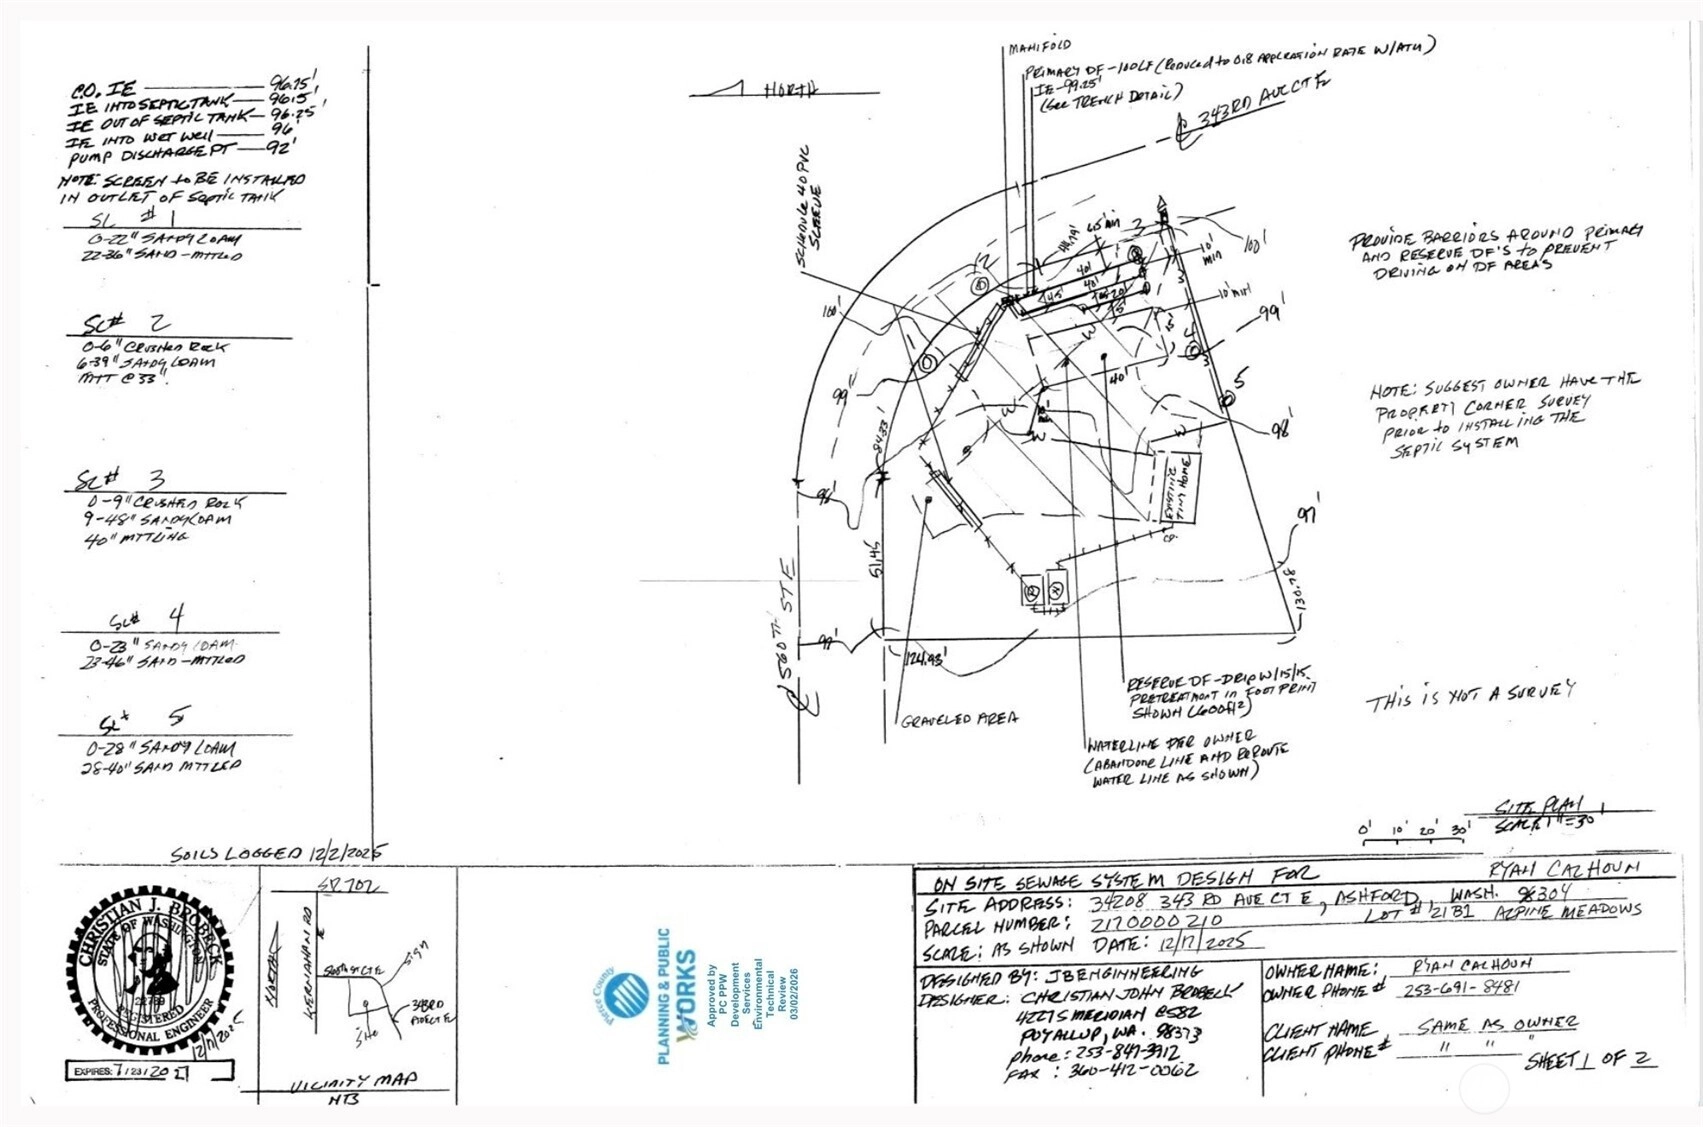 C.O. IE — 96.75'
IE INTO SEPTIC TANK — 96.5'
IE OUT OF SEPTIC TANK — 96.25'
IE INTO WET WELL — 96'
PUMP DISCHARGE PT — 92'
NOTE: SCREEN TO BE INSTALLED
IN OUTLET OF SEPTIC TANK
SL # 1
0-22" SANDY LOAM
22-36" SAND-MTTLED
SL# 2
0-6" CRUSHED ROCK
6-39" SANDY LOAM
MTT @ 33"
SL# 3
0-9" CRUSHED ROCK
9-48" SANDY LOAM
40" MTTLING
SL# 4
0-23" SANDY LOAM
23-46" SAND-MTTLED
SL# 5
0-28" SANDY LOAM
28-40" SAND MTTLED
SOILS LOGGED 12/2/2025
NORTH
MANIFOLD
PRIMARY DF-100LF (REDUCED TO 0.8 APPLICATION RATE W/ATU)
IE-99.25'
(SEE TRENCH DETAIL)
℄ 343RD AVE CT E
SCHEDULE 40 PVC
SLEEVE
100'
99'
98'
97'
2
3
4
5
65' MIN
10'
MIN
100'
10' MIN
99'
98'
97'
40'
40'
40'
W
W
W
W
84.33'
51.45
124.93'
130.28'
EXISTING
TINY HOME
℄ 560TH ST E
GRAVELED AREA
RESERVE DF-DRIP W/15/15
PRETREATMENT IN FOOTPRINT
SHOWN (600ft²)
WATERLINE PER OWNER
(ABANDON LINE AND REROUTE
WATER LINE AS SHOWN)
PROVIDE BARRIORS AROUND PRIMARY
AND RESERVE DF'S TO PREVENT
DRIVING ON DF AREAS
NOTE: SUGGEST OWNER HAVE THE
PROPERTY CORNER SURVEY
PRIOR TO INSTALLING THE
SEPTIC SYSTEM
THIS IS NOT A SURVEY
SITE PLAN
SCALE 1"=30'
0' 10' 20' 30'
CHRISTIAN J. BROBECK
STATE OF WASHINGTON
22789
REGISTERED
PROFESSIONAL ENGINEER
12/17/2025
EXPIRES: 7/23/20
SR 702
NORTH
KERNAHAN RD
E
560TH ST CT E
SITE
343RD
AVE CT E
VICINITY MAP
NTS
Pierce County
PLANNING & PUBLIC
WORKS
Approved by
PC PPW
Development
Services
Environmental
Technical
Review
03/02/2026
ON SITE SEWAGE SYSTEM DESIGN FOR RYAN CALHOUN
SITE ADDRESS: 34208 343 RD AVE CT E, ASHFORD, WASH. 98304
PARCEL NUMBER: 2170000210 LOT # 21B1 ALPINE MEADOWS
SCALE: AS SHOWN DATE: 12/17/2025
DESIGNED BY: JB ENGINEERING
DESIGNER: CHRISTIAN JOHN BROBECK
4227 S MERIDIAN C582
PUYALLUP, WA. 98373
phone: 253-841-3912
FAX: 360-412-0062
OWNER NAME: RYAN CALHOUN
OWNER PHONE# 253-691-8481
CLIENT NAME SAME AS OWNER
CLIENT PHONE# " " "
SHEET 1 OF 2